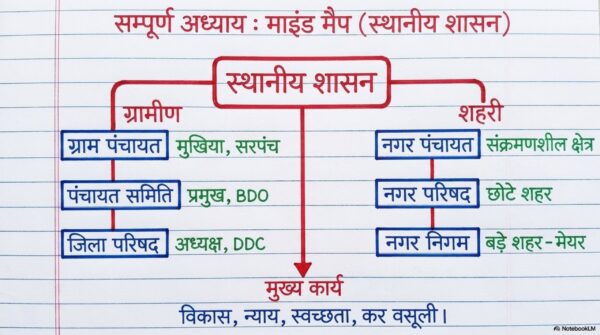 सम्पूर्ण अध्याय : माइंड मैप (स्थानीय शासन)
स्थानीय शासन
ग्रामीण
ग्राम पंचायत मुखिया, सरपंच
पंचायत समिति प्रमुख, BDO
जिला परिषद अध्यक्ष, DDC
शहरी
नगर पंचायत संक्रमणशील क्षेत्र
नगर परिषद छोटे शहर
नगर निगम बड़े शहर-मेयर
मुख्य कार्य
विकास, न्याय, स्वच्छता, कर वसूली।
NotebookLM